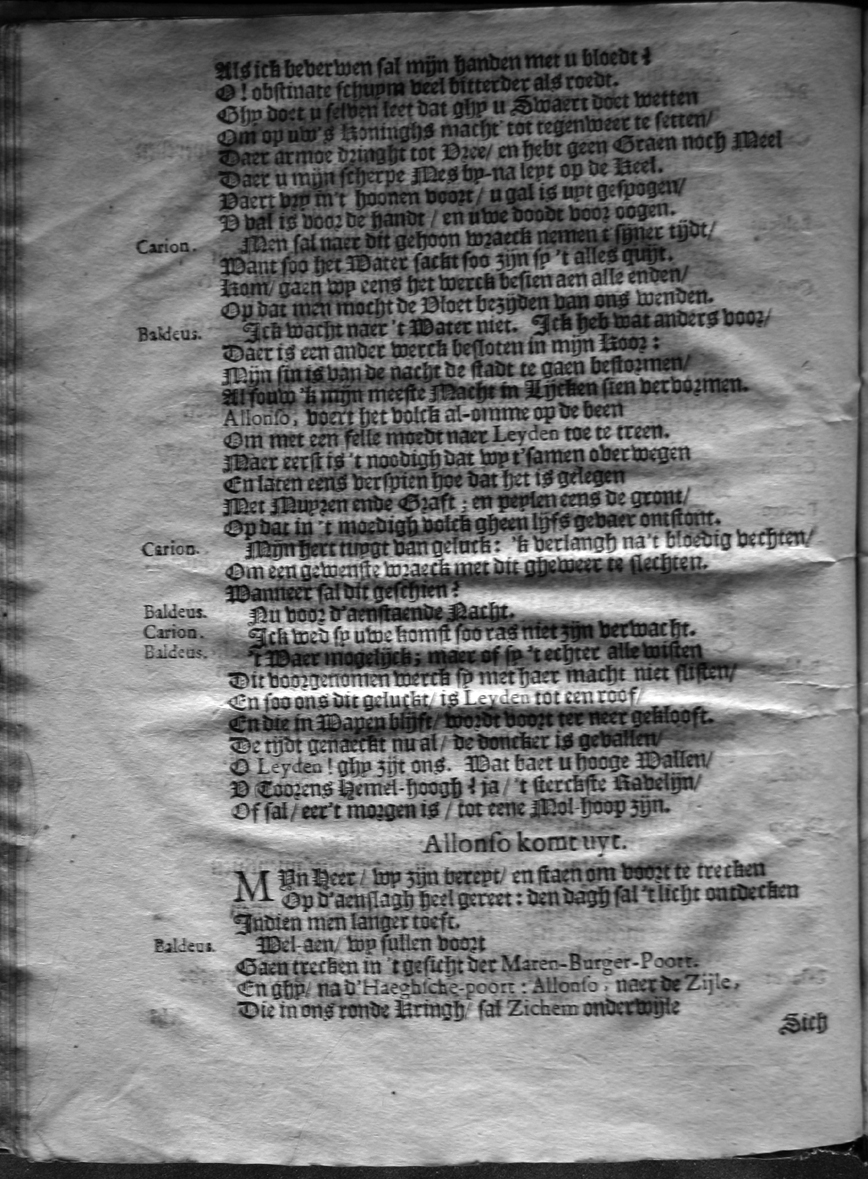 Als ick beverwen sal mijn handen met u bloedt?
O! obstinate schuym veel bitterder als roedt.
Ghy doet u selven leet dat ghy u Swaert doet wetten
Om op uw's Koninghs macht tot tegenweer te setten/
Daer armoe dringht tot Vree/ en hebt geen Graen noch Meel
Daer u mijn scherpe Mes by-na leyt op de Keel.
Vaert vry in't hoonen voort/ u gal is uyt gespogen/
V val is voor de handt/ en uwe doodt voor oogen.
Carion. Men sal naer dit gehoon wraeck nemen t'sijner tijdt/
Want soo het Water sackt soo zijn sy 't alles quijt.
Kom/ gaen wy eens het werck besien aen alle enden/
Op dat men mocht de Vloet bezyden van ons wenden.
Baldeus. Ick wacht naer 't Water niet. Ick heb wat anders voor/
Daer is een ander werck besloten in mijn Koor:
Mijn sin is van de nacht de stadt te gaen bestormen/
Al souw 'k mijn meeste Macht in Lijcken sien vervormen.
Allonso, voert het volck al-omme op de been
Om met een felle moedt naer Leyden toe te treen.
Maer eerst is 't noodigh dat wy t'samen overwegen
En laten eens verspien hoe dat het is gelegen
Met Muyren ende Graft; en peylen eens de gront/
Op dat in 't moedigh volck gheen lijfs gevaer ontstont.
Carion. Mijn hert tuygt van geluck: 'k verlangh na't bloedig vechten/
Om een gewenste wraeck met dit gheweer te slechten.
Wanneer sal dit geschien?
Baldeus. Nu voor d'aenstaende Nacht.
Carion. Ick wed sy uwe komst soo ras niet zijn verwacht.
Baldeus. 't Waer mogelijck; maer of sy 't echter alle wisten
Dit voorgenomen werck sy met haer macht niet slisten/
En soo ons dit geluckt/ is Leyden tot een roof/
En die in Wapen blijft/ wordt voort ter neer geklooft.
De tijdt genaeckt nu al/ de doncker is gevallen/
O Leyden! ghy zijt ons. Wat baet u hooge Wallen/
V Toorens Hemel-hoogh? ja/ 't sterckste Ravelijn/
Of sal/ eer't morgen is/ tot eene Mol-hoop zijn.
Allonso komt uyt.
MYn Heer/ wy zijn bereyt/ en staen om voort te trecken
Op d'aenslagh heel gereet: den dagh sal 't licht ontdecken
Indien men langer toeft.
Baldeus. Wel-aen/ wy sullen voort
Gaen trecken in 't gesicht der Maren-Burger-Poort.
En ghy/ na d'Haeghsche-poort: Allonso, naer de Zijle,
Die in ons ronde Kringh/ sal Zichem onderwijle
Sich